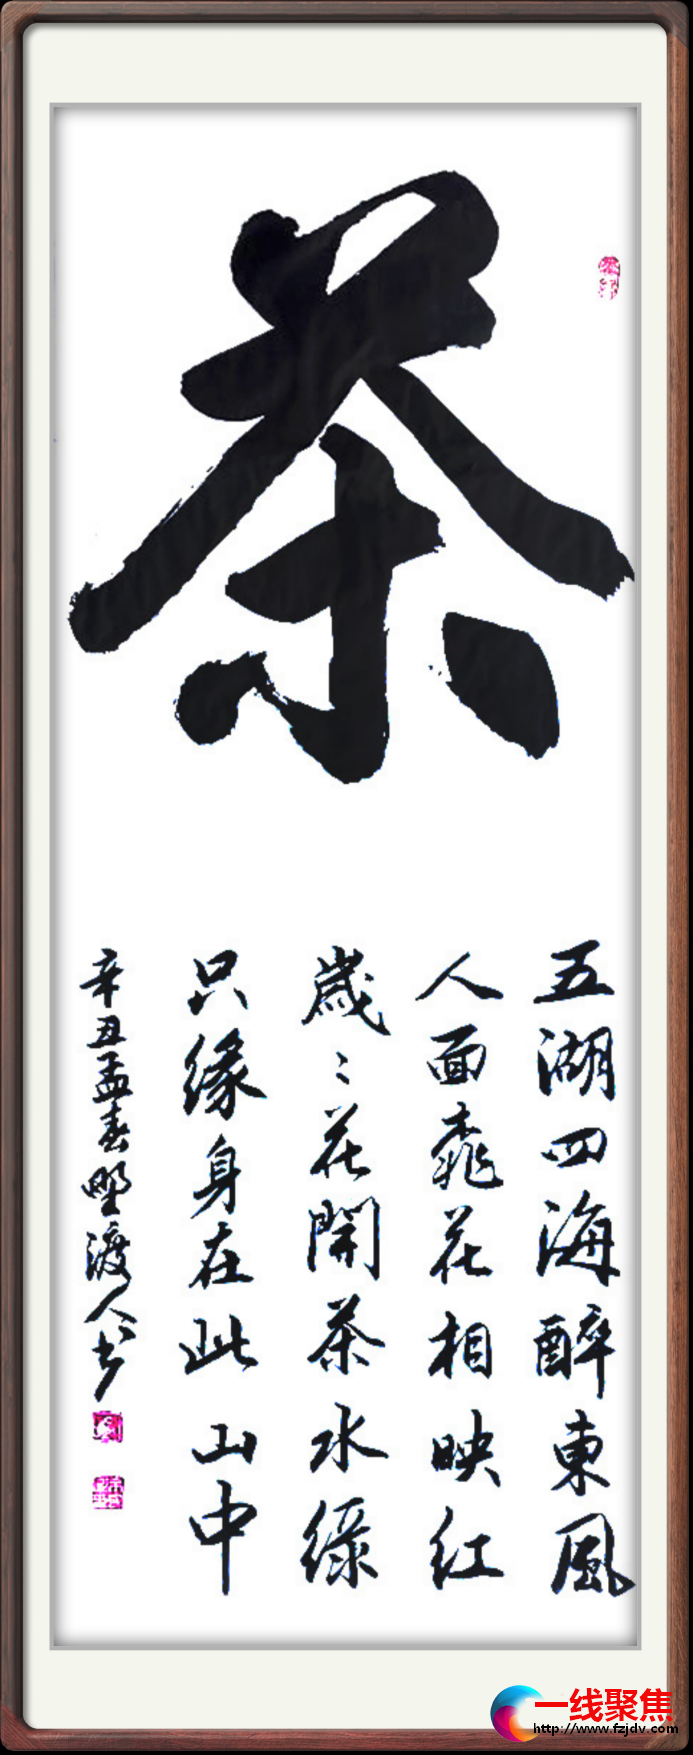 茶
五湖四海醉東風
人面桃花相映红
歲〻花開茶水緑
只缘身在此山中
辛丑孟春野渡人书
一线聚焦
http://www.fzjdv.com